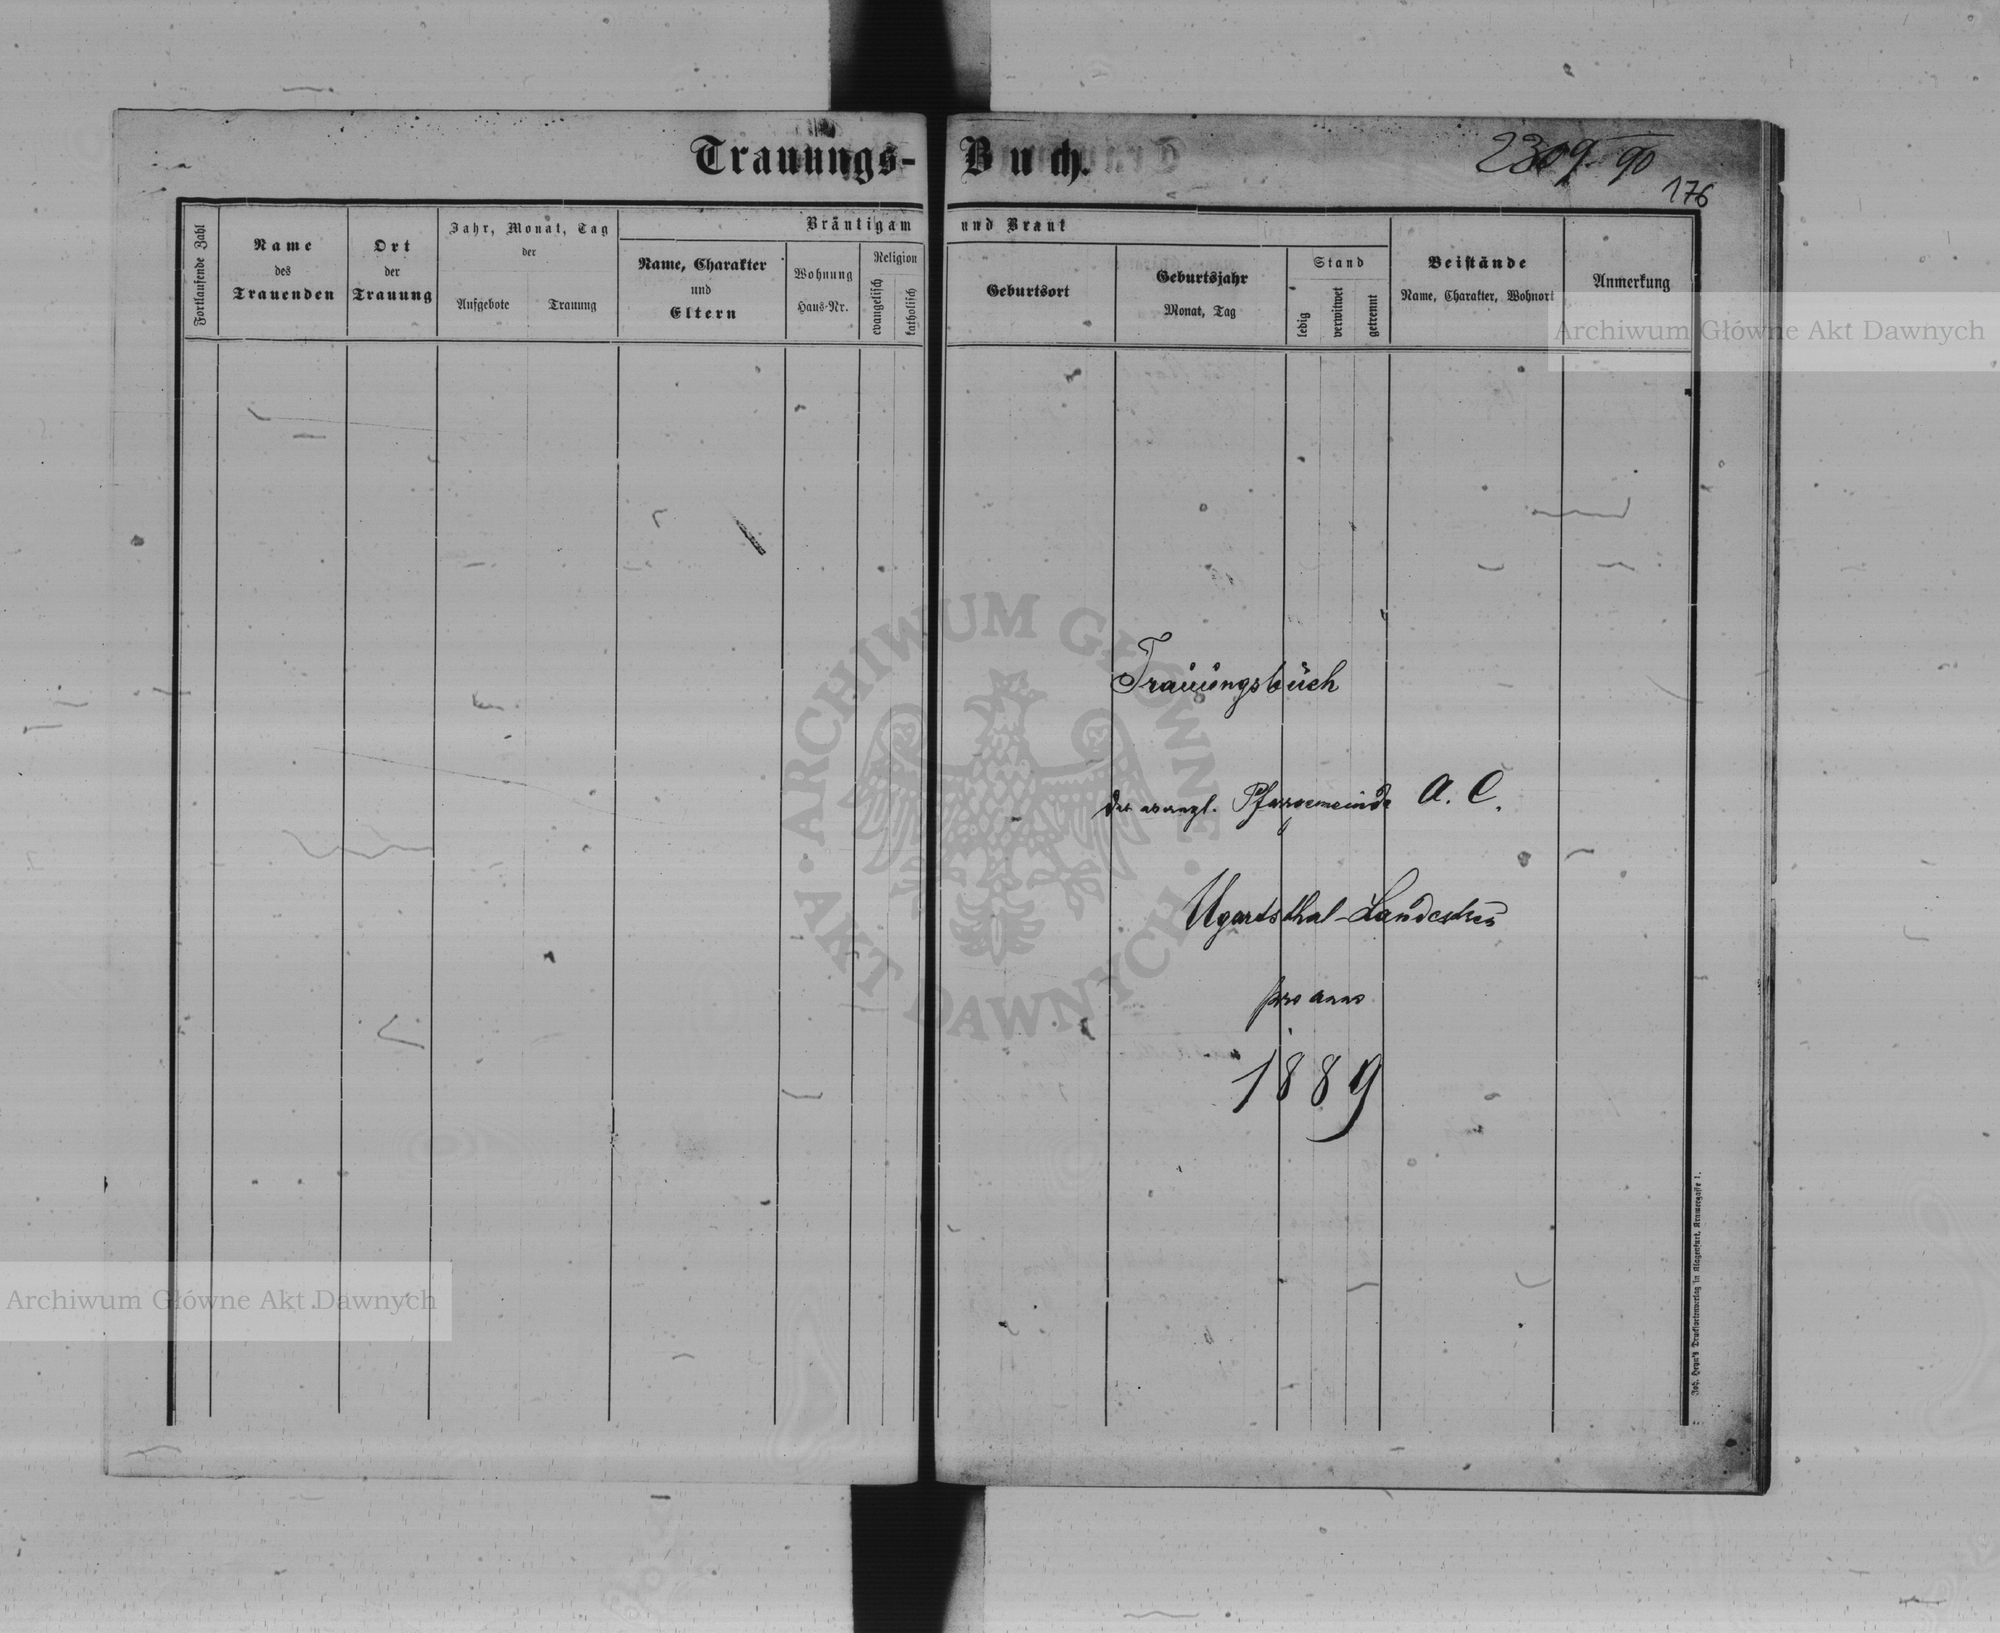 Trauungs-Buch.
2309. 90
176
Fortlaufende Zahl
Name
des
Trauenden
Ort
der
Trauung
Jahr, Monat, Tag
der
Aufgebote
Trauung
Bräutigam und Braut
Name, Charakter
und
Eltern
Wohnung
Haus-Nr.
Religion
evangelisch
katholisch
Geburtsort
Geburtsjahr
Monat, Tag
Stand
ledig
verwitwet
getrennt
Beistände
Name, Charakter, Wohnort
Anmerkung
Archiwum Główne Akt Dawnych
ARCHIWUM GŁÓWNE · AKT DAWNYCH ·
Trauungsbuch
der evangl. Pfarrgemeinde A. C.
Ugartsthal-Landestreu
pro anno
1889
Archiwum Główne Akt Dawnych
Joh. Heyn's Drucksortenverlag in Klagenfurt, Kramergasse 1.